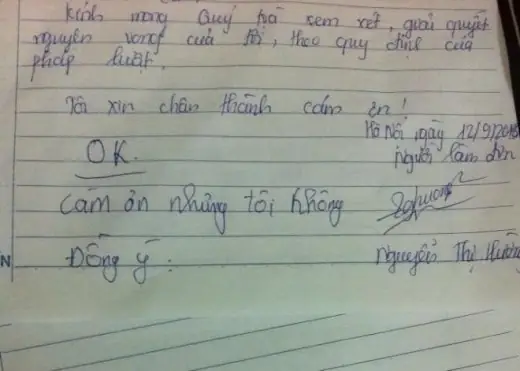 Kính mong Quý toà xem xét, giải quyết
nguyện vọng của tôi, theo quy định của
pháp luật.
Tôi xin chân thành cảm ơn!
Hà Nội, ngày 12/9/201
OK.
Người làm đơn
Cảm ơn nhưng tôi không
Đồng ý:
Nguyễn Thị Hường
N